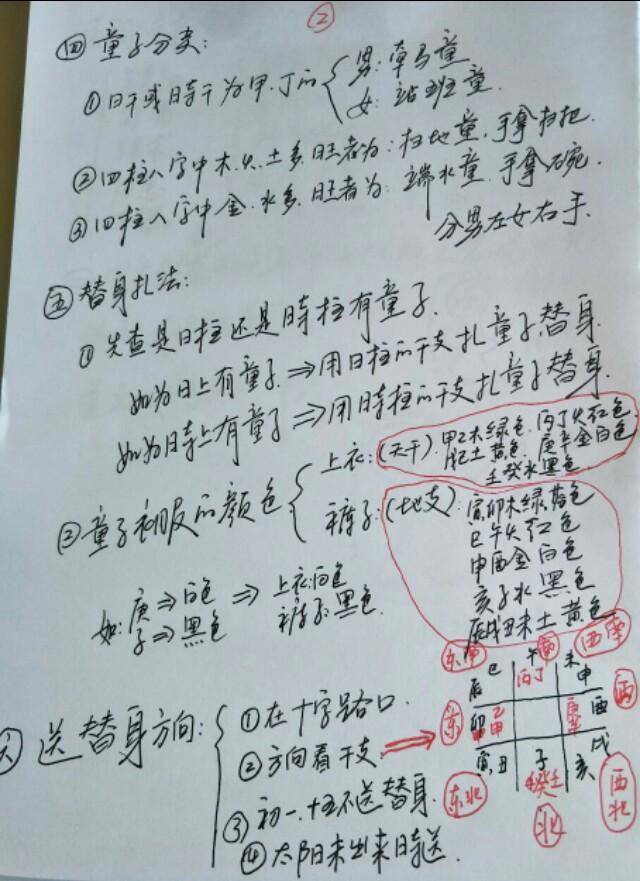 ②
四 童子分类:
①日干或日时干为甲.丁的 男:牵马童
女:站班童
②四柱八字中木.火.土多.旺者为:扫地童,手拿扫把.
③四柱八字中金.水多.旺者为:端水童.手拿碗.
分男左女右手.
五 替身扎法:
①先查是日柱还是时柱有童子.
如为日上有童子.⇒用日柱的干支扎童子替身.
如为日时上有童子⇒用时柱的干支扎童子替身
②童子衣服的颜色
上衣:(天干).甲乙木绿色.丙丁火红色
戊己土黄色.庚辛金白色
壬癸水黑色
裤子:(地支):寅卯木绿色
巳午火红色
申酉金白色
亥子水黑色
辰戌丑未土黄色
如:庚⇒白色 ⇒ 上衣:白色
子⇒黑色 裤子:黑色.
六 送替身方向:
①在十字路口.
②方向看干支.
③初一.十五不送替身.
④太阳未出来时送.
东南 南 西南
巳 午 未
辰 丙丁 申
东 卯 甲乙 庚辛 酉 西
寅 丑 子 亥 戌
壬癸
东北 北 西北